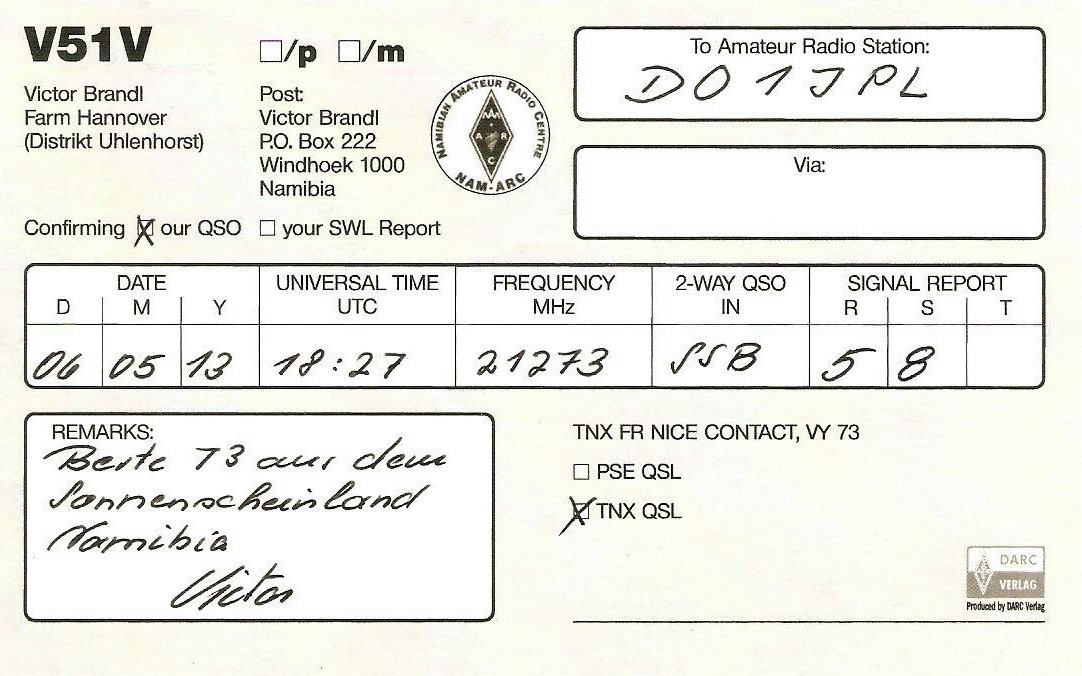 V51V
□/p □/m
Victor Brandl
Farm Hannover
(Distrikt Uhlenhorst)
Post:
Victor Brandl
P.O. Box 222
Windhoek 1000
Namibia
NAMIBIAN AMATEUR RADIO CENTRE
A R C
NAM-ARC
To Amateur Radio Station:
DO1JPL
Via:
Confirming ☒ our QSO □ your SWL Report
DATE UNIVERSAL TIME FREQUENCY 2-WAY QSO SIGNAL REPORT
D M Y UTC MHz IN R S T
06 05 13 18:27 21273 SSB 5 8
REMARKS:
Beste 73 aus dem
Sonnenscheinland
Namibia
Victor
TNX FR NICE CONTACT, VY 73
□ PSE QSL
☒ TNX QSL
DARC
VERLAG
Produced by DARC Verlag